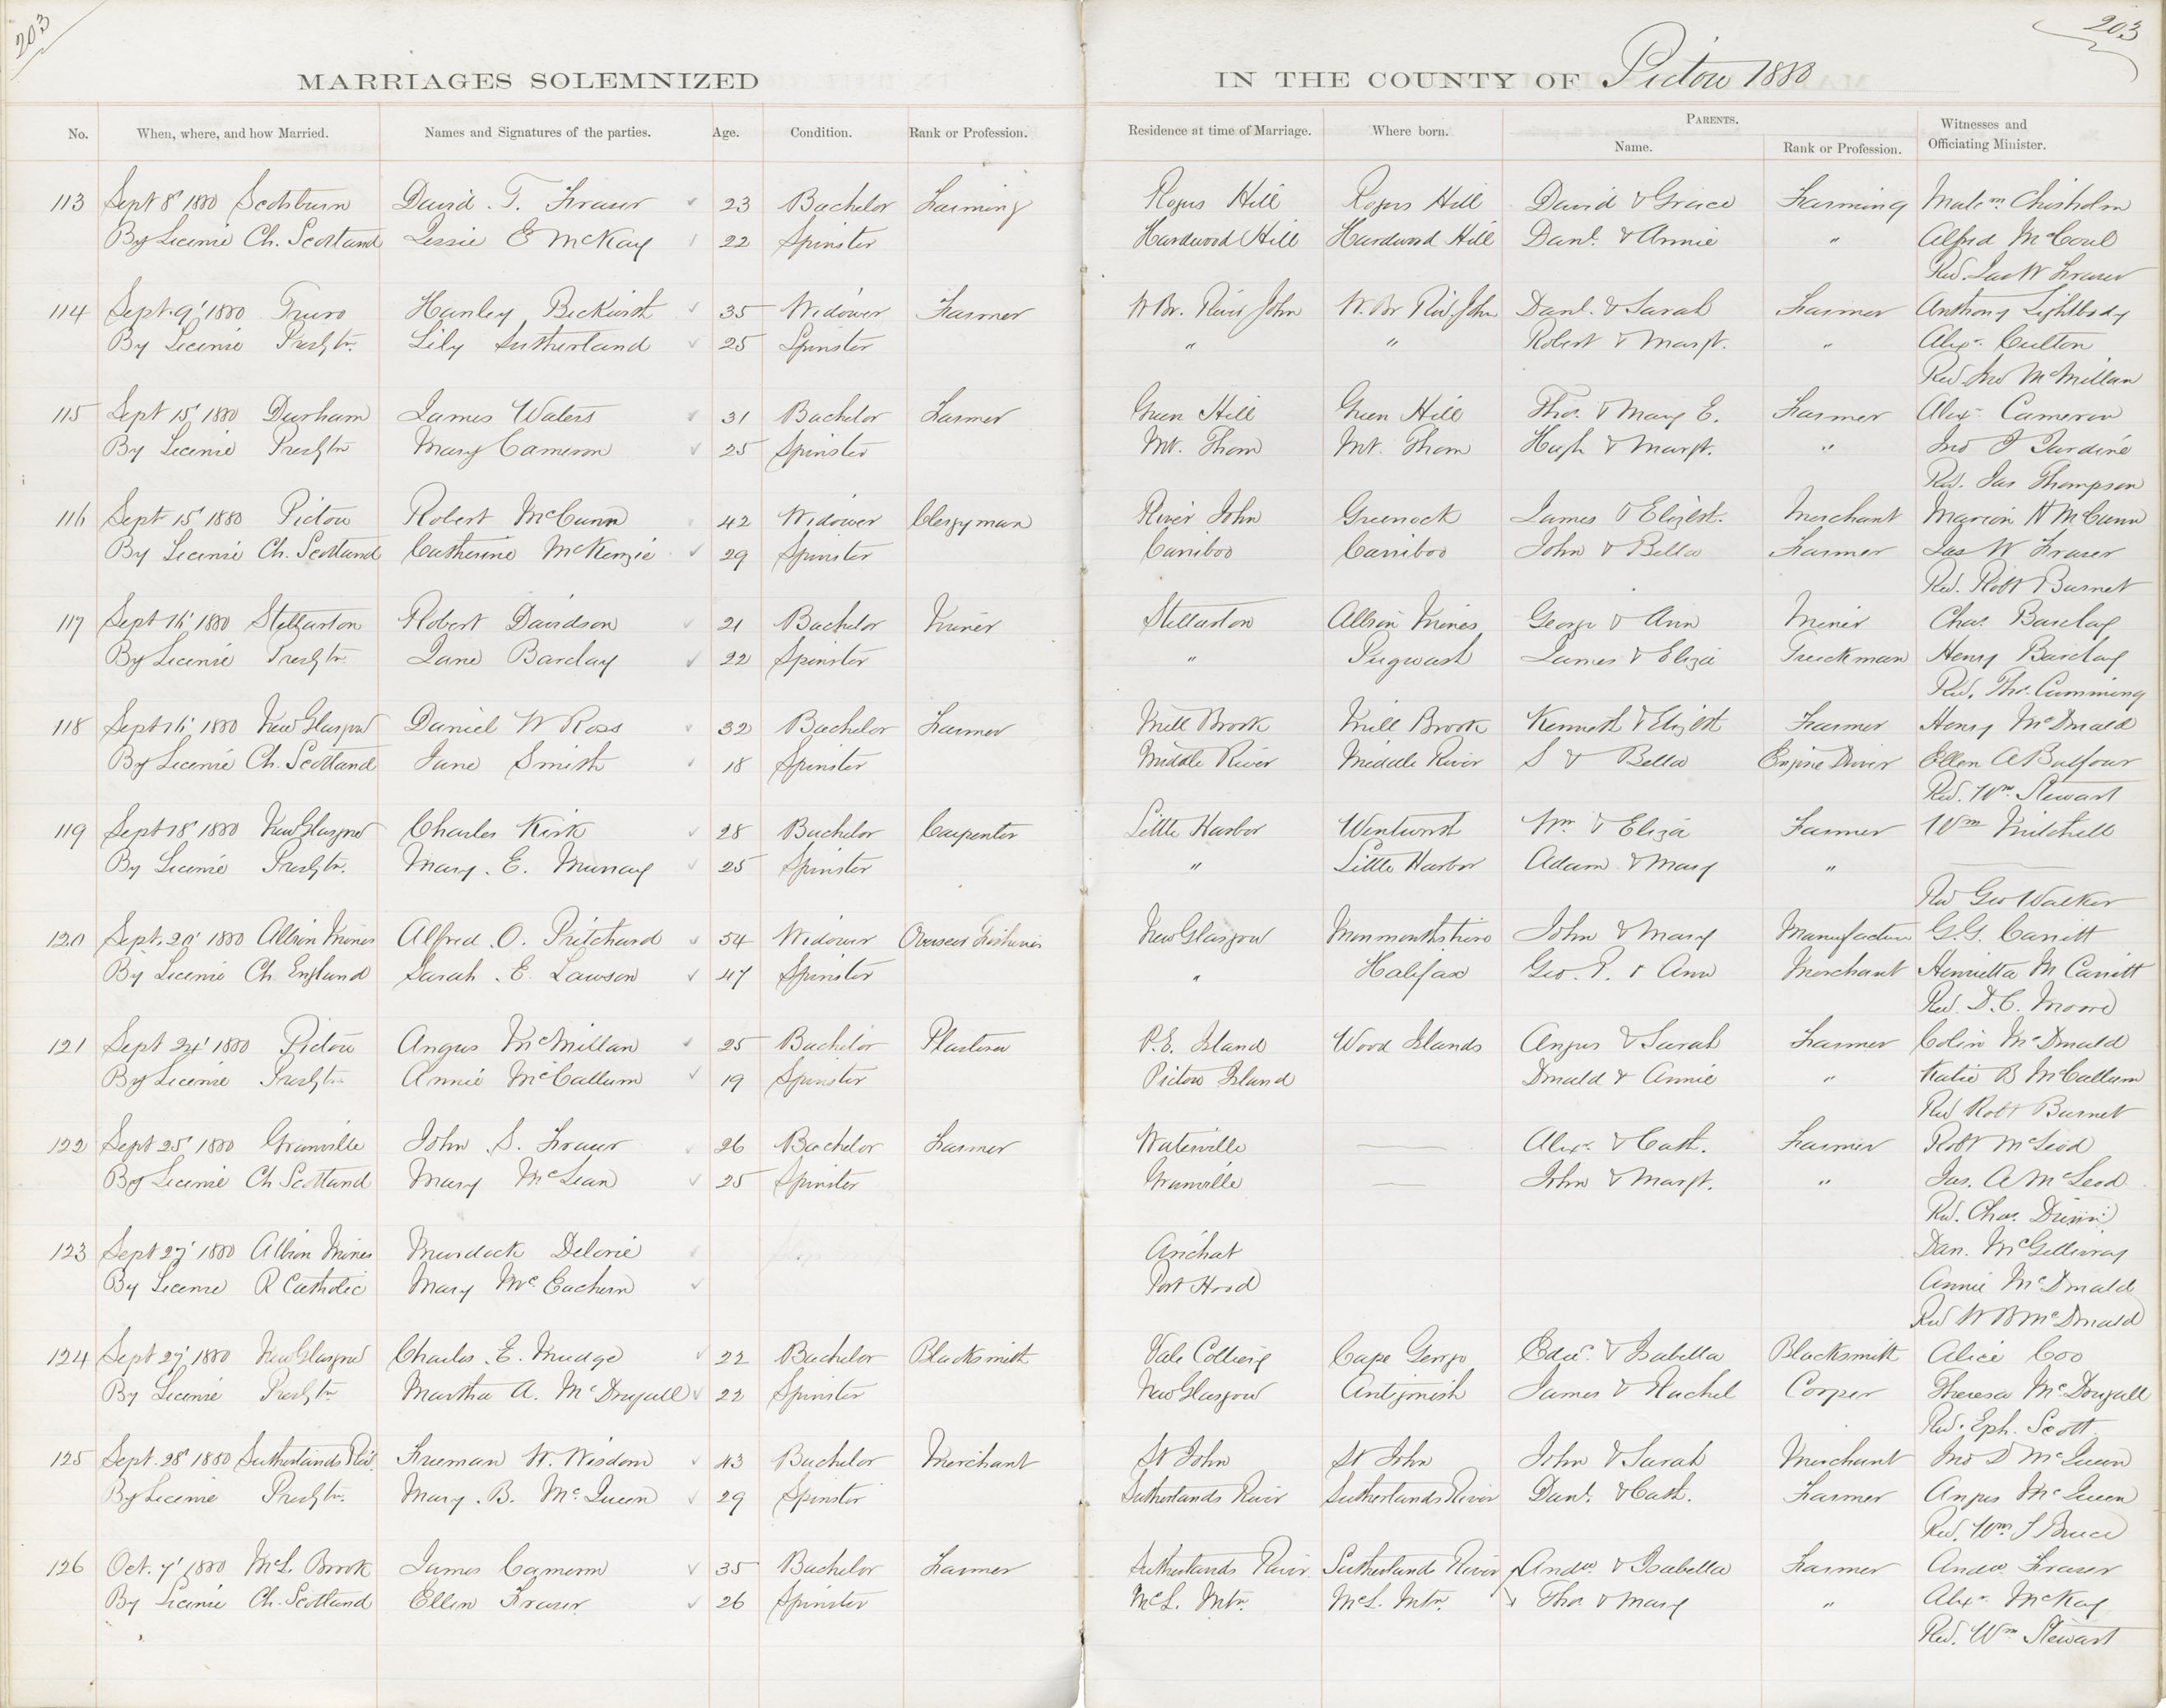 203
203
MARRIAGES SOLEMNIZED IN THE COUNTY OF Pictou 1880
No. When, where, and how Married. Names and Signatures of the parties. Age. Condition. Rank or Profession. Residence at time of Marriage. Where born. PARENTS. Name. Rank or Profession. Witnesses and Officiating Minister.
113 Sept 8' 1880 Scotsburn David T. Fraser 23 Bachelor Farming Rogers Hill Rogers Hill David & Grace Farming Malcm Chisholm
By License Ch. Scotland Jessie E McKay 22 Spinster Hardwood Hill Hardwood Hill Danl. & Annie " Alfred McCoul
Rev. Jas W Fraser
114 Sept. 9' 1880 Truro Hanley Beckwith 35 Widower Farmer W Br. River John W. Br Riv. John Danl. & Sarah Farmer Anthony Lightbody
By License Presbtn. Lily Sutherland 25 Spinster " " Robert & Margt. " Alexr. Culton
Rev. Jno McMillan
115 Sept 15' 1880 Durham James Waters 31 Bachelor Farmer Green Hill Green Hill Thos. & Mary E. Farmer Alexr. Cameron
By License Presbtn Mary Cameron 25 Spinster Mt. Thom Mt. Thom Hugh & Margt. " Jno F Jardine
Rev. Jas Thompson
116 Sept 15' 1880 Pictou Robert McCunn 42 Widower Clergyman River John Greenock James & Elizbt. Merchant Marion H McCunn
By License Ch. Scotland Catherine McKenzie 29 Spinster Cariboo Cariboo John & Bella Farmer Jas W Fraser
Rev. Robt Burnet
117 Sept 16' 1880 Stellarton Robert Davidson 21 Bachelor Miner Stellarton Albion Mines George & Ann Miner Chas. Barclay
By License Presbtn. Jane Barclay 22 Spinster " Pugwash James & Eliza Truckman Henry Barclay
Rev. Thos. Cumming
118 Sept 16' 1880 New Glasgow Daniel W Ross 32 Bachelor Farmer Mill Brook Mill Brook Kenneth & Elizbt Farmer Henry McDonald
By License Ch. Scotland Jane Smith 18 Spinster Middle River Middle River S & Bella Engine Driver Ellen A Balfour
Rev. Wm. Stewart
119 Sept 18' 1880 New Glasgow Charles Kirk 28 Bachelor Carpenter Little Harbor Wentworth Wm & Eliza Farmer Wm Mitchell
By License Presbtn. Mary. E. Murray 25 Spinster " Little Harbor Adam & Mary "
Rev Geo Walker
120 Sept. 20' 1880 Albion Mines Alfred. O. Pritchard 54 Widower Overseer Fisheries New Glasgow Monmouthshire John & Mary Manufacturer G. G. Carritt
By License Ch. England Sarah. E. Lawson 47 Spinster " Halifax Geo. P. & Ann Merchant Henrietta M Carritt
Rev. D. C. Moore
121 Sept 24' 1880 Pictou Angus McMillan 25 Bachelor Plasterer P.E. Island Wood Islands Angus & Sarah Farmer Colin McDonald
By License Presbtn Annie McCallum 19 Spinster Pictou Island Donald & Annie " Katie B McCallum
Rev Robt Burnet
122 Sept 25' 1880 Granville John. S. Fraser 26 Bachelor Farmer Waterville — Alexr. & Cath. Farmer Robt McLeod
By License Ch Scotland Mary McLean 25 Spinster Granville — John & Margt. " Jas. A McLeod
Rev. Chas. Dunn
123 Sept 27' 1880 Albion Mines Murdoch Delorie Arichat Dan. McGillivray
By License R Catholic Mary McEachern Port Hood Annie McDonald
Rev W B McDonald
124 Sept 27' 1880 New Glasgow Charles. E. Mudge 22 Bachelor Blacksmith Vale Colliery Cape George Edw. & Isabella Blacksmith Alice Coo
By License Presbtn Martha A. McDougall 22 Spinster New Glasgow Antigonish James & Rachel Cooper Theresa McDougall
Rev. Eph. Scott
125 Sept. 28' 1880 Sutherlands Riv. Freeman W. Wisdom 43 Bachelor Merchant St John St John John & Sarah Merchant Jno D McQueen
By License Presbtn. Mary. B. McQueen 29 Spinster Sutherlands River Sutherlands River Danl. & Cath. Farmer Angus McQueen
Rev. Wm. S Bruce
126 Oct. 7' 1880 McL. Brook James Cameron 35 Bachelor Farmer Sutherlands River Sutherlands River Andw. & Isabella Farmer Andw Fraser
By License Ch. Scotland Ellen Fraser 26 Spinster McL. Mtn. McL. Mtn. Thos & Mary " Alexr. McKay
Rev. Wm Stewart